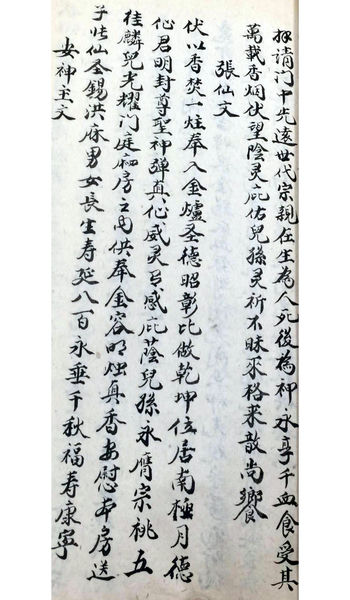 拜请门中先远世代宗亲在生為人死後為神永享千血食受其
萬載香烟伏望陰灵庇佑兒孫灵祈不昧來格来散尚饗
張仙文
伏以香焚一炷奉入金爐圣德昭彰比做乾坤位居南極月德
化君明封尊聖神弹真化威灵有感庇蔭兒孫永膺宗桃五
桂麟兒光耀门庭之内供奉金容明烛真香安慰本房送
子張仙圣錫洪庥男女長生寿延八百永垂千秋福寿康寧
安神主文